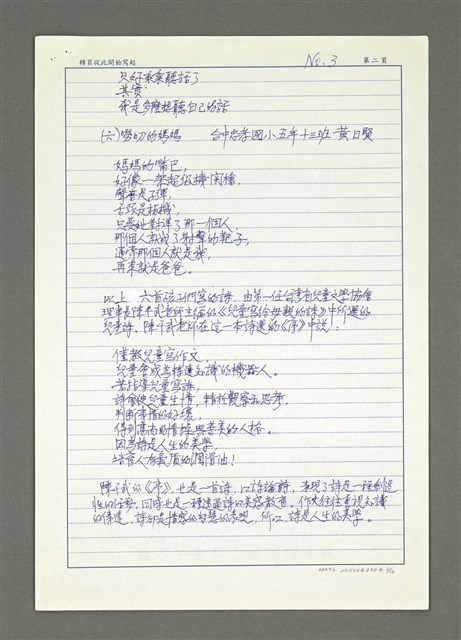 轉頁從此開始寫起
No. 3
第二頁
只好乖乖聽話了
其實
我是多麼想聽自己的話
(六)嘮叨的媽媽 台中忠孝國小五年十三班 黃日賢
媽媽的嘴巴,
好像一架超級機關槍,
聲音是子彈,
舌頭是板機,
只要她對準了那一個人,
那個人就成了射擊的靶子,
通常那個人就是我,
再來就是爸爸。
以上 六首孩子們寫的詩,由第一任台灣省兒童文學協會
理事長陳千武老師主編的《兒童寫給母親的詩》中所選的
兒童詩。陳千武老師在這一本詩選的《序》中說:
僅教兒童寫作文,
兒童會成為傳達知識的機器人。
若指導兒童寫詩,
詩會使兒童生情,精於觀察和思考,
判斷事情的好壞,
得到高尚的情操與善美的人格。
因為詩是人生的美學,
培育人有氣質的潤滑油!
陳千武的《序》,也是一首詩,以詩論詩,表現了詩是一種創造
性的活動,同時也是一種透過詩的美感教育。作文往往重視知識
的傳達,詩卻是情感的智慧的表現,所以,詩是人生的美學。